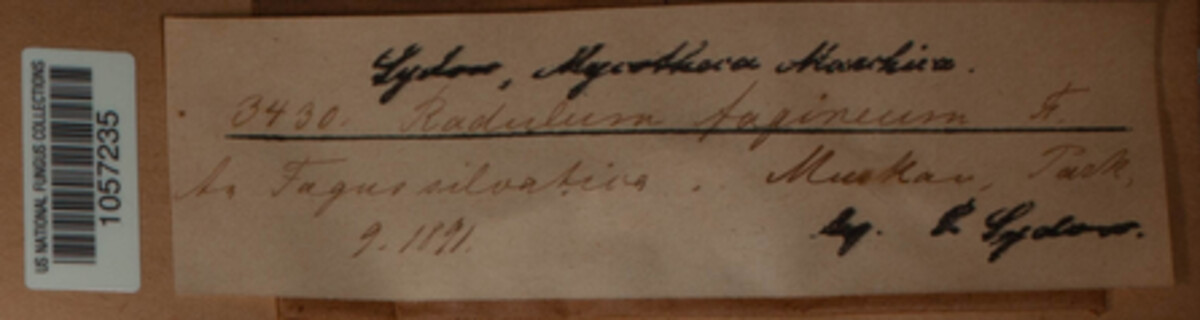 US NATIONAL FUNGUS COLLECTIONS
1057235
Sydow, Mycotheca Marchica.
3430. Radulum fagineum Fr.
An Fagus silvatica. Muskau, Park,
9. 1891.
leg. P. Sydow.